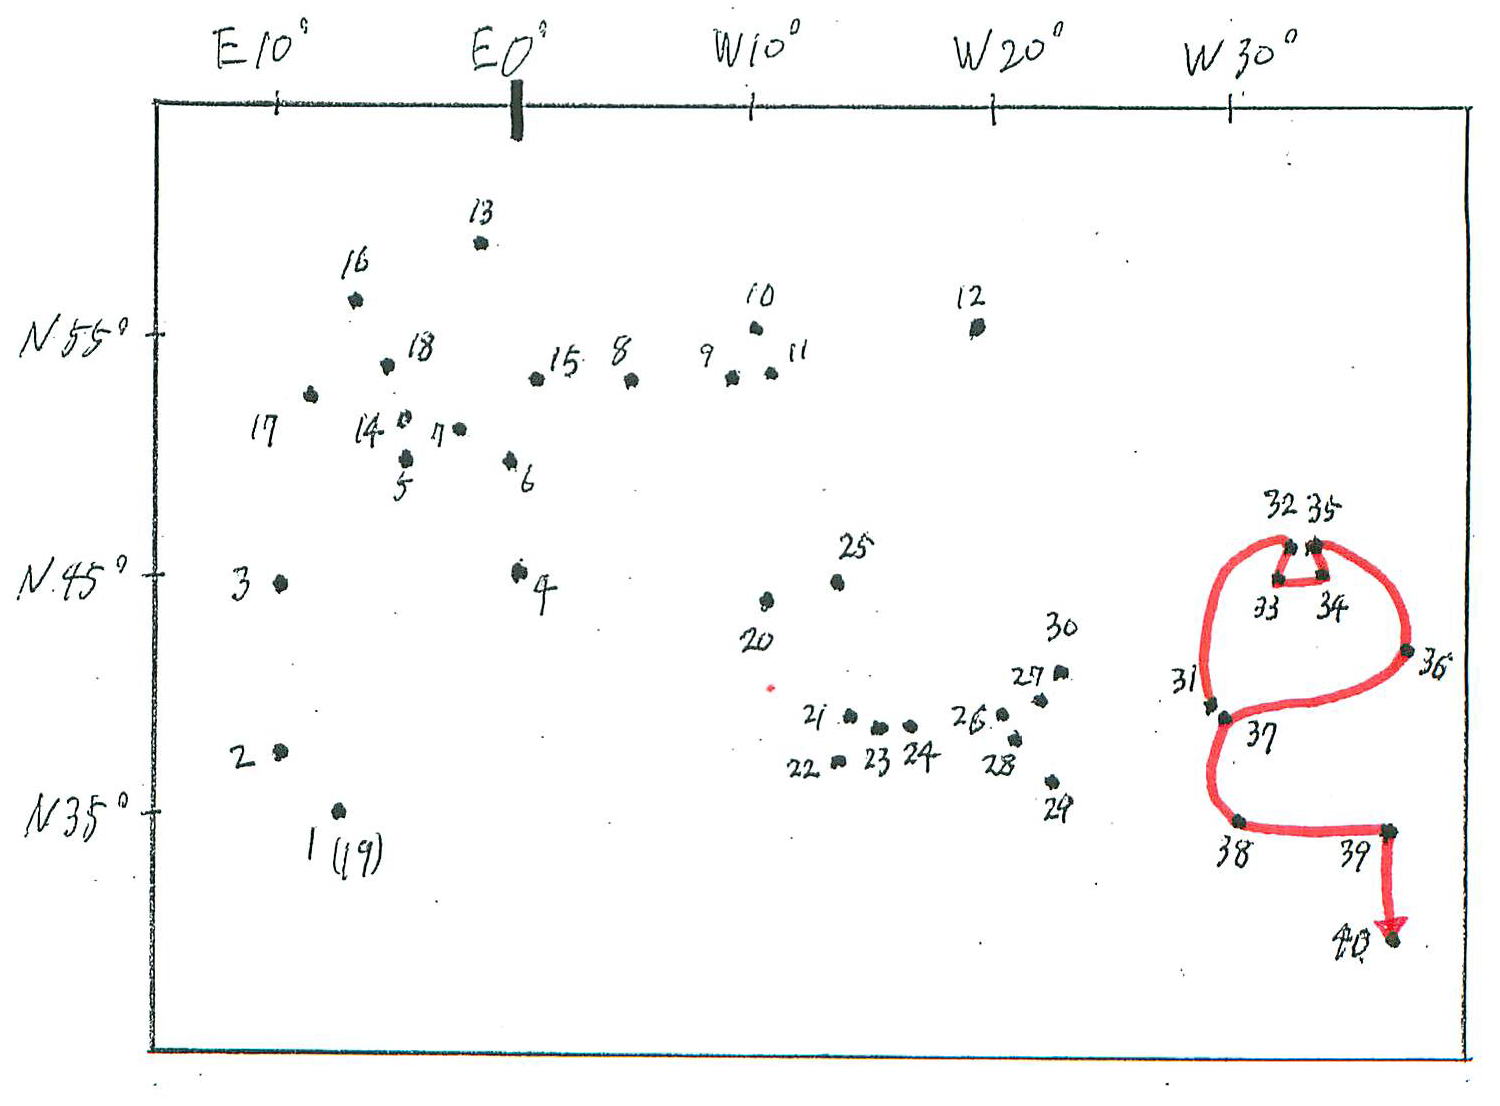 E10° E0° W10° W20° W30°
13
16
10 12
N55°
18 15 8 9 11
17 14 7
5 6
32 35
25
N45°
3 4
33 34
20 30
27 31 36
21 26 37
22 23 24 28
2
29
N35°
1 (19) 38 39
40